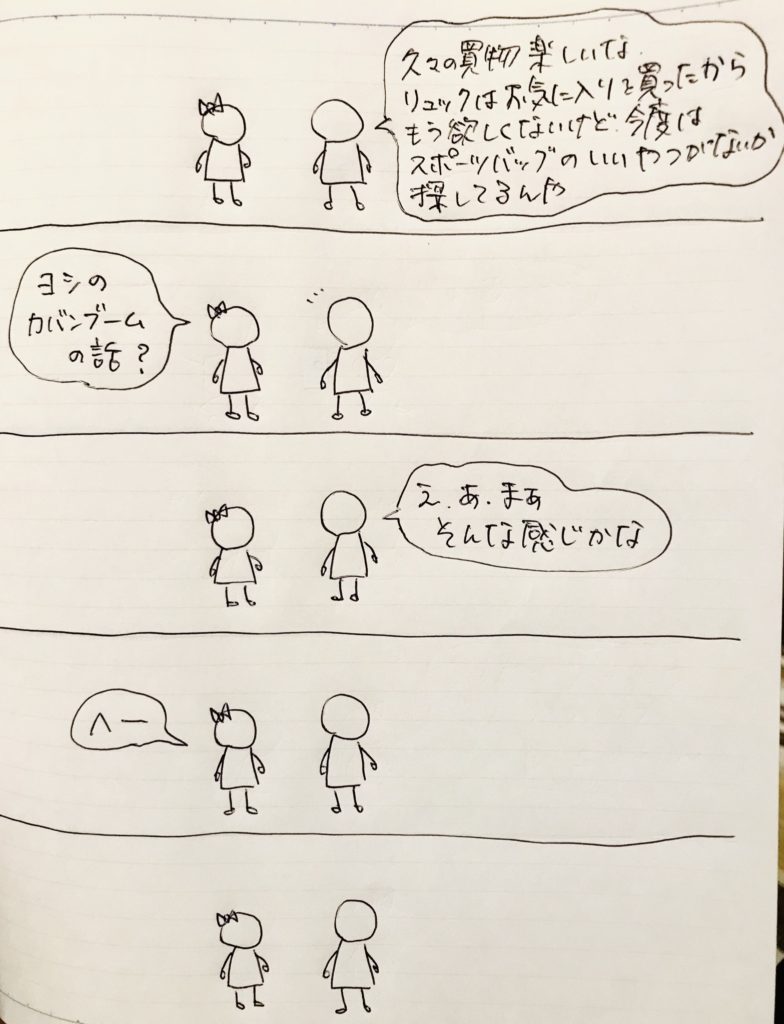 久々の買物楽しいな.
リュックはお気に入りを買ったから
もう欲しくないけど.今度は
スポーツバッグのいいやつがないか
探してるんや
ヨシの
カバンブーム
の話?
え.あ.まぁ
そんな感じかな
へー